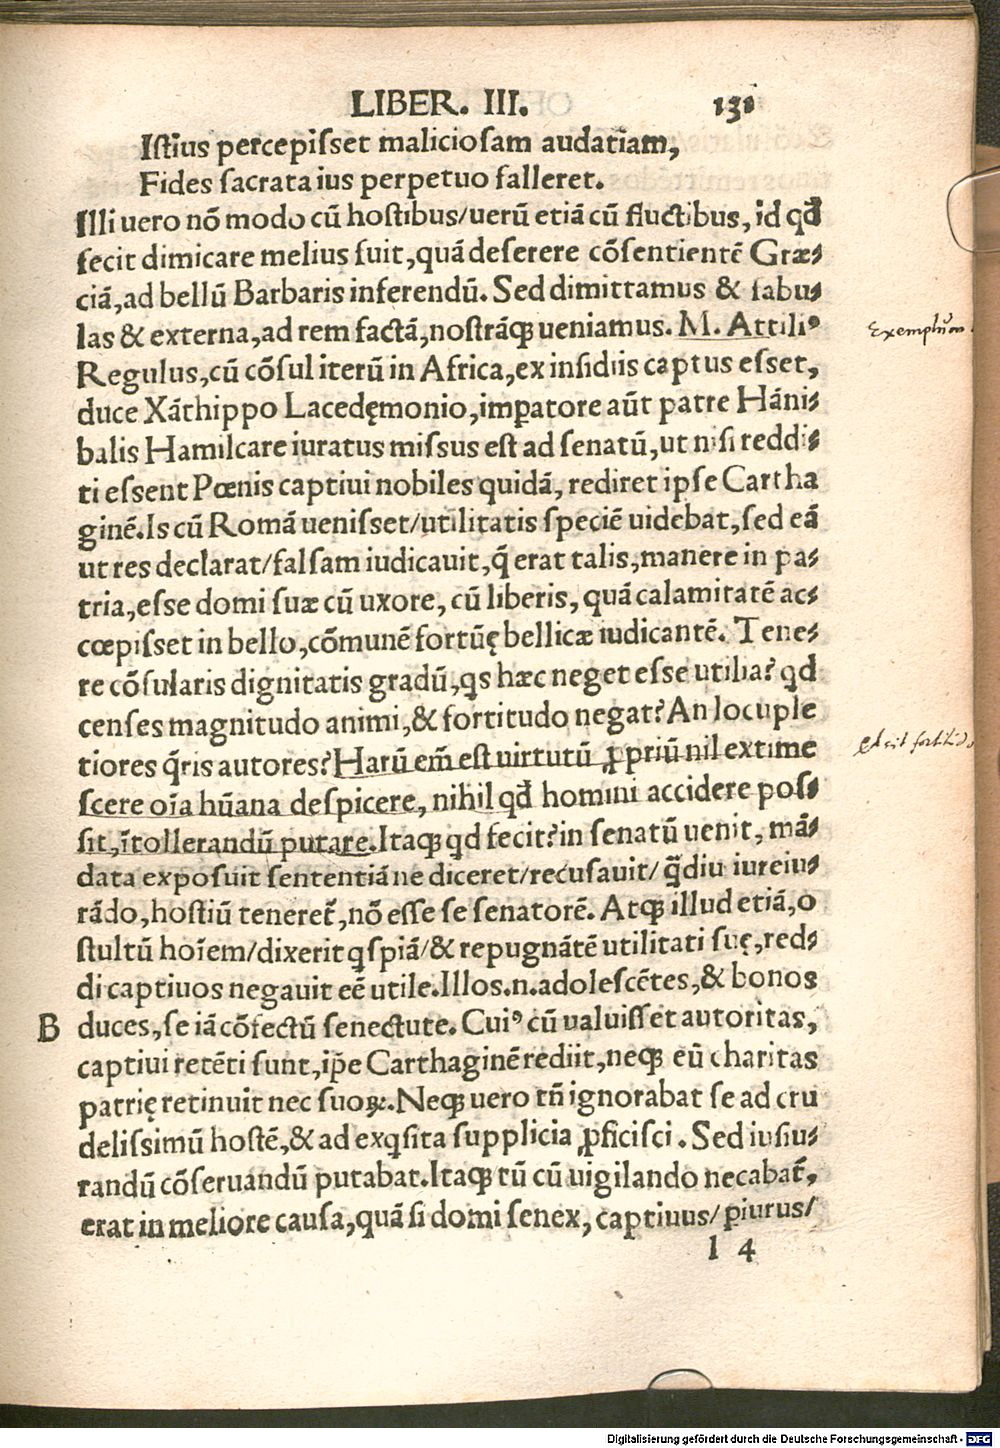 LIBER. III. 131
Istius percepisset maliciosam audatiam,
Fides sacrata ius perpetuo falleret.
Illi uero nõ modo cũ hostibus/uerũ etiã cũ fluctibus, id qđ
fecit dimicare melius fuit, quã deserere cõsentientẽ Græ⸗
ciã, ad bellũ Barbaris inferendũ. Sed dimittamus & fabu⸗
las & externa, ad rem factã, nostrãqꝫ ueniamus. M. Attiliꝰ
Regulus, cũ cõsul iterũ in Africa, ex insidiis captus esset,
duce Xãthippo Lacedęmonio, imꝑatore aũt patre Hãni⸗
balis Hamilcare iuratus missus est ad senatũ, ut nisi reddi⸗
ti essent Pœnis captiui nobiles quidã, rediret ipse Cartha
ginẽ. Is cũ Romã uenisset/utilitatis speciẽ uidebat, sed eã
ut res declarat/falsam iudicauit, q̃ erat talis, manere in pa⸗
tria, esse domi suæ cũ uxore, cũ liberis, quã calamitatẽ ac⸗
cœpisset in bello, cõmunẽ fortũę bellicæ iudicantẽ. Tene⸗
re cõsularis dignitatis gradũ, qs hæc neget esse utilia? qd
censes magnitudo animi, & fortitudo negat? An locuple
tiores q̃ris autores? Harũ em̃ est uirtutũ ꝓpriũ nil extime
scere oĩa hũana despicere, nihil qđ homini accidere pos⸗
sit, ĩtollerandũ putare. Itaqꝫ qd fecit? in senatũ uenit, mã⸗
data exposuit sententiã ne diceret/recusauit/ q̃diu iureiu⸗
rãdo, hostiũ tenereť, nõ esse se senatorẽ. Atqꝫ illud etiã, o
stultũ hoĩem/dixerit qspiã/& repugnãtẽ utilitati suę, red⸗
di captiuos negauit eẽ utile. Illos .n. adolescẽtes, & bonos
B duces, se iã cõfectũ senectute. Cuiꝰ cũ ualuisset autoritas,
captiui retẽti sunt, ip̃e Carthaginẽ rediit, neqꝫ eũ charitas
patrię retinuit nec suoꝝ. Neqꝫ uero tñ ignorabat se ad cru
delissimũ hostẽ, & ad exqsita supplicia ꝓficisci. Sed iusiu⸗
randũ cõseruandũ putabat. Itaqꝫ tũ cũ uigilando necabať,
erat in meliore causa, quã si domi senex, captiuus/ ꝑiurus/
l 4
Exemplum
fortitudo
Digitalisierung gefördert durch die Deutsche Forschungsgemeinschaft - DFG